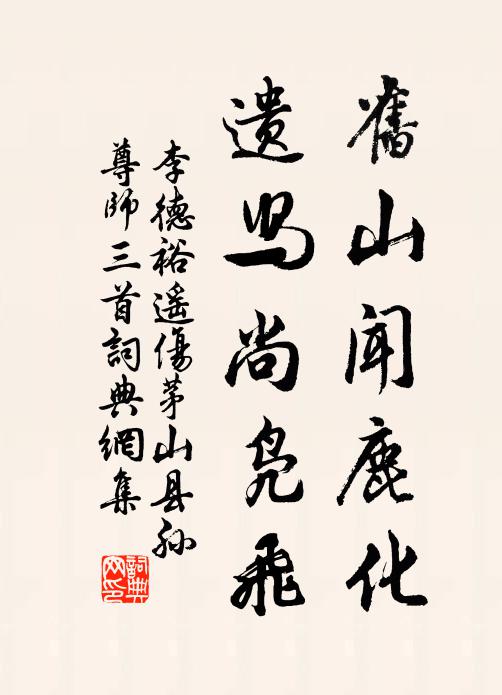 舊山聞鹿化
遺舄尚鳧飛
李德裕遥傷茅山县孙
尊師三首詞典網集
詞典
网印